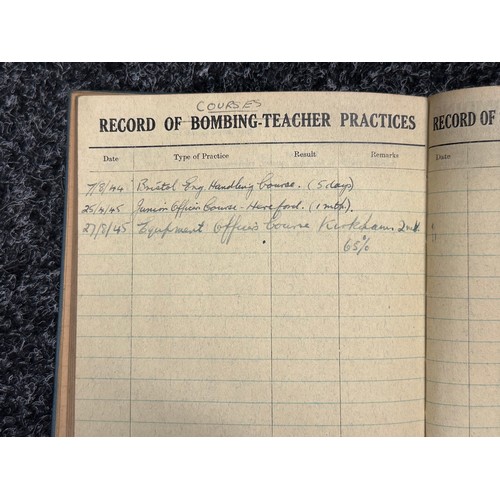 COURSES
RECORD OF BOMBING-TEACHER PRACTICES
RECORD OF
Date Type of Practice Result Remarks
Date
7/8/44 Bristol Eng. Handling Course. (5 days)
25/4/45 Junior Officers Course - Hereford. (1 mth).
27/8/45 Equipment Officers Course Kirkham. 2 mth.
65%